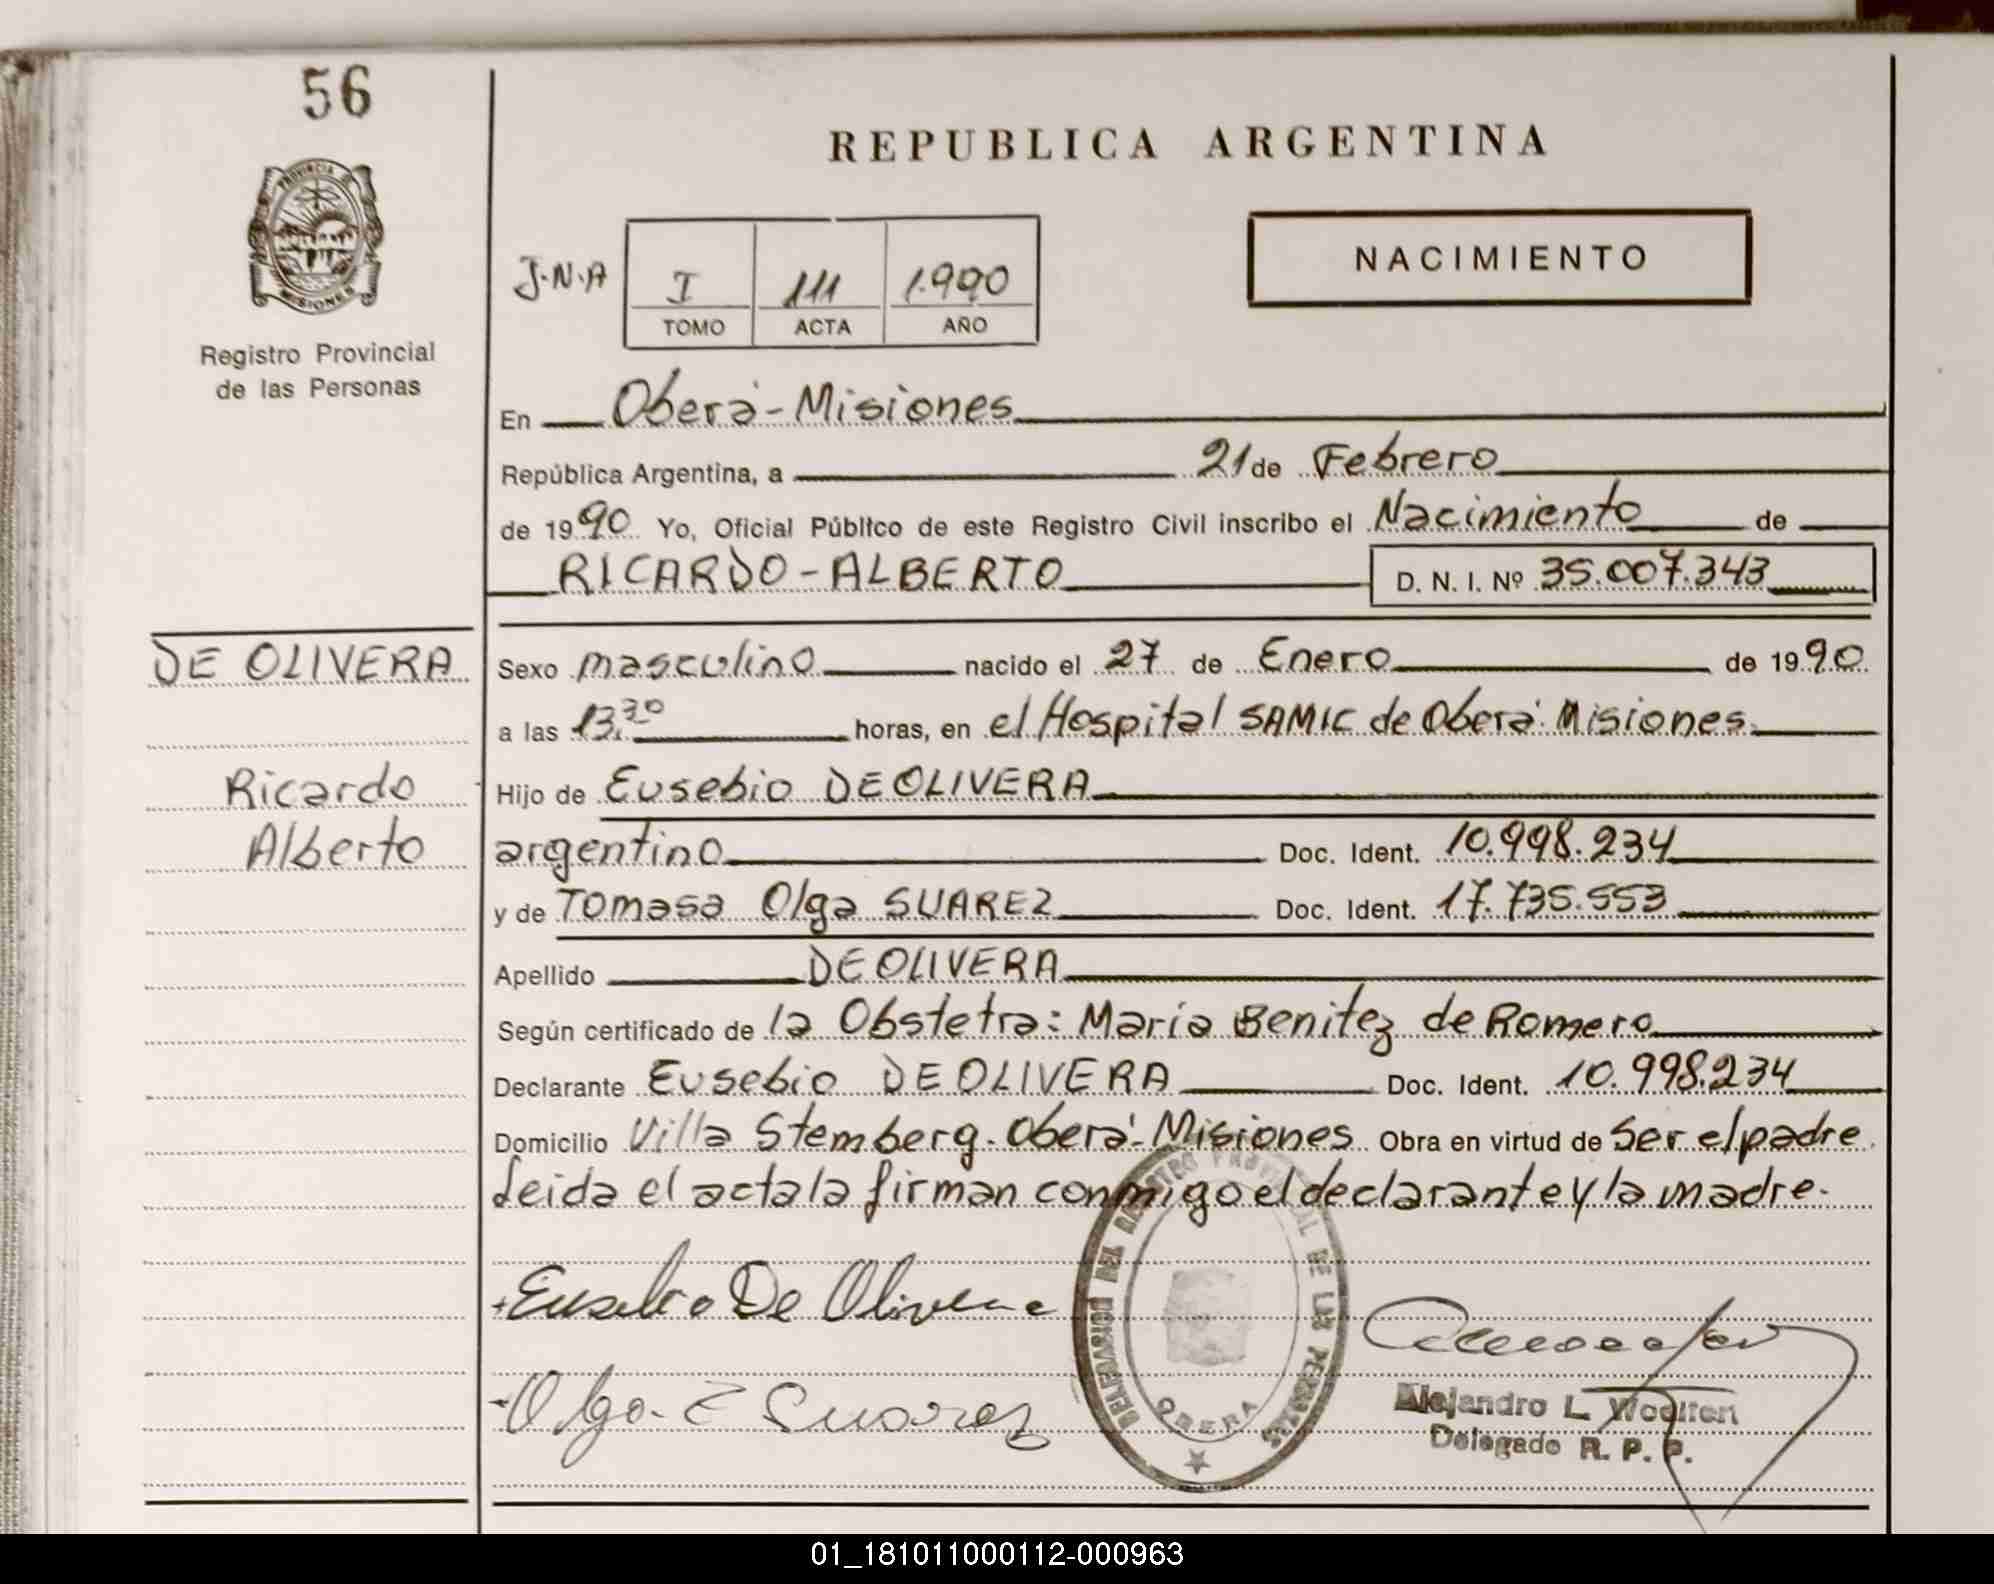 56
REPUBLICA ARGENTINA
PROVINCIA DE
MISIONES
Registro Provincial
de las Personas
NACIMIENTO
J.N.A I 111 1.990
TOMO ACTA AÑO
En Oberá-Misiones
República Argentina, a 21 de Febrero
de 1990 Yo, Oficial Público de este Registro Civil inscribo el Nacimiento de
RICARDO-ALBERTO D. N. I. Nº 35.007.343
DE OLIVERA
Ricardo
Alberto
Sexo masculino nacido el 27 de Enero de 1990
a las 13.30 horas, en el Hospital SAMIC de Oberá. Misiones.
Hijo de Eusebio DE OLIVERA
argentino Doc. Ident. 10.998.234
y de Tomasa Olga SUAREZ Doc. Ident. 17.735.553
Apellido DE OLIVERA
Según certificado de la Obstetra: María Benitez de Romero
Declarante Eusebio DE OLIVERA Doc. Ident. 10.998.234
Domicilio Villa Stemberg. Oberá-Misiones Obra en virtud de Ser el padre.
Leida el acta la firman conmigo el declarante y la madre.
Eusebio De Olivera
Olga E Suarez
DELEGACION DEL REGISTRO PROVINCIAL DE LAS PERSONAS
OBERA
Alejandro L.
Delegado R. P. P.
01_181011000112-000963